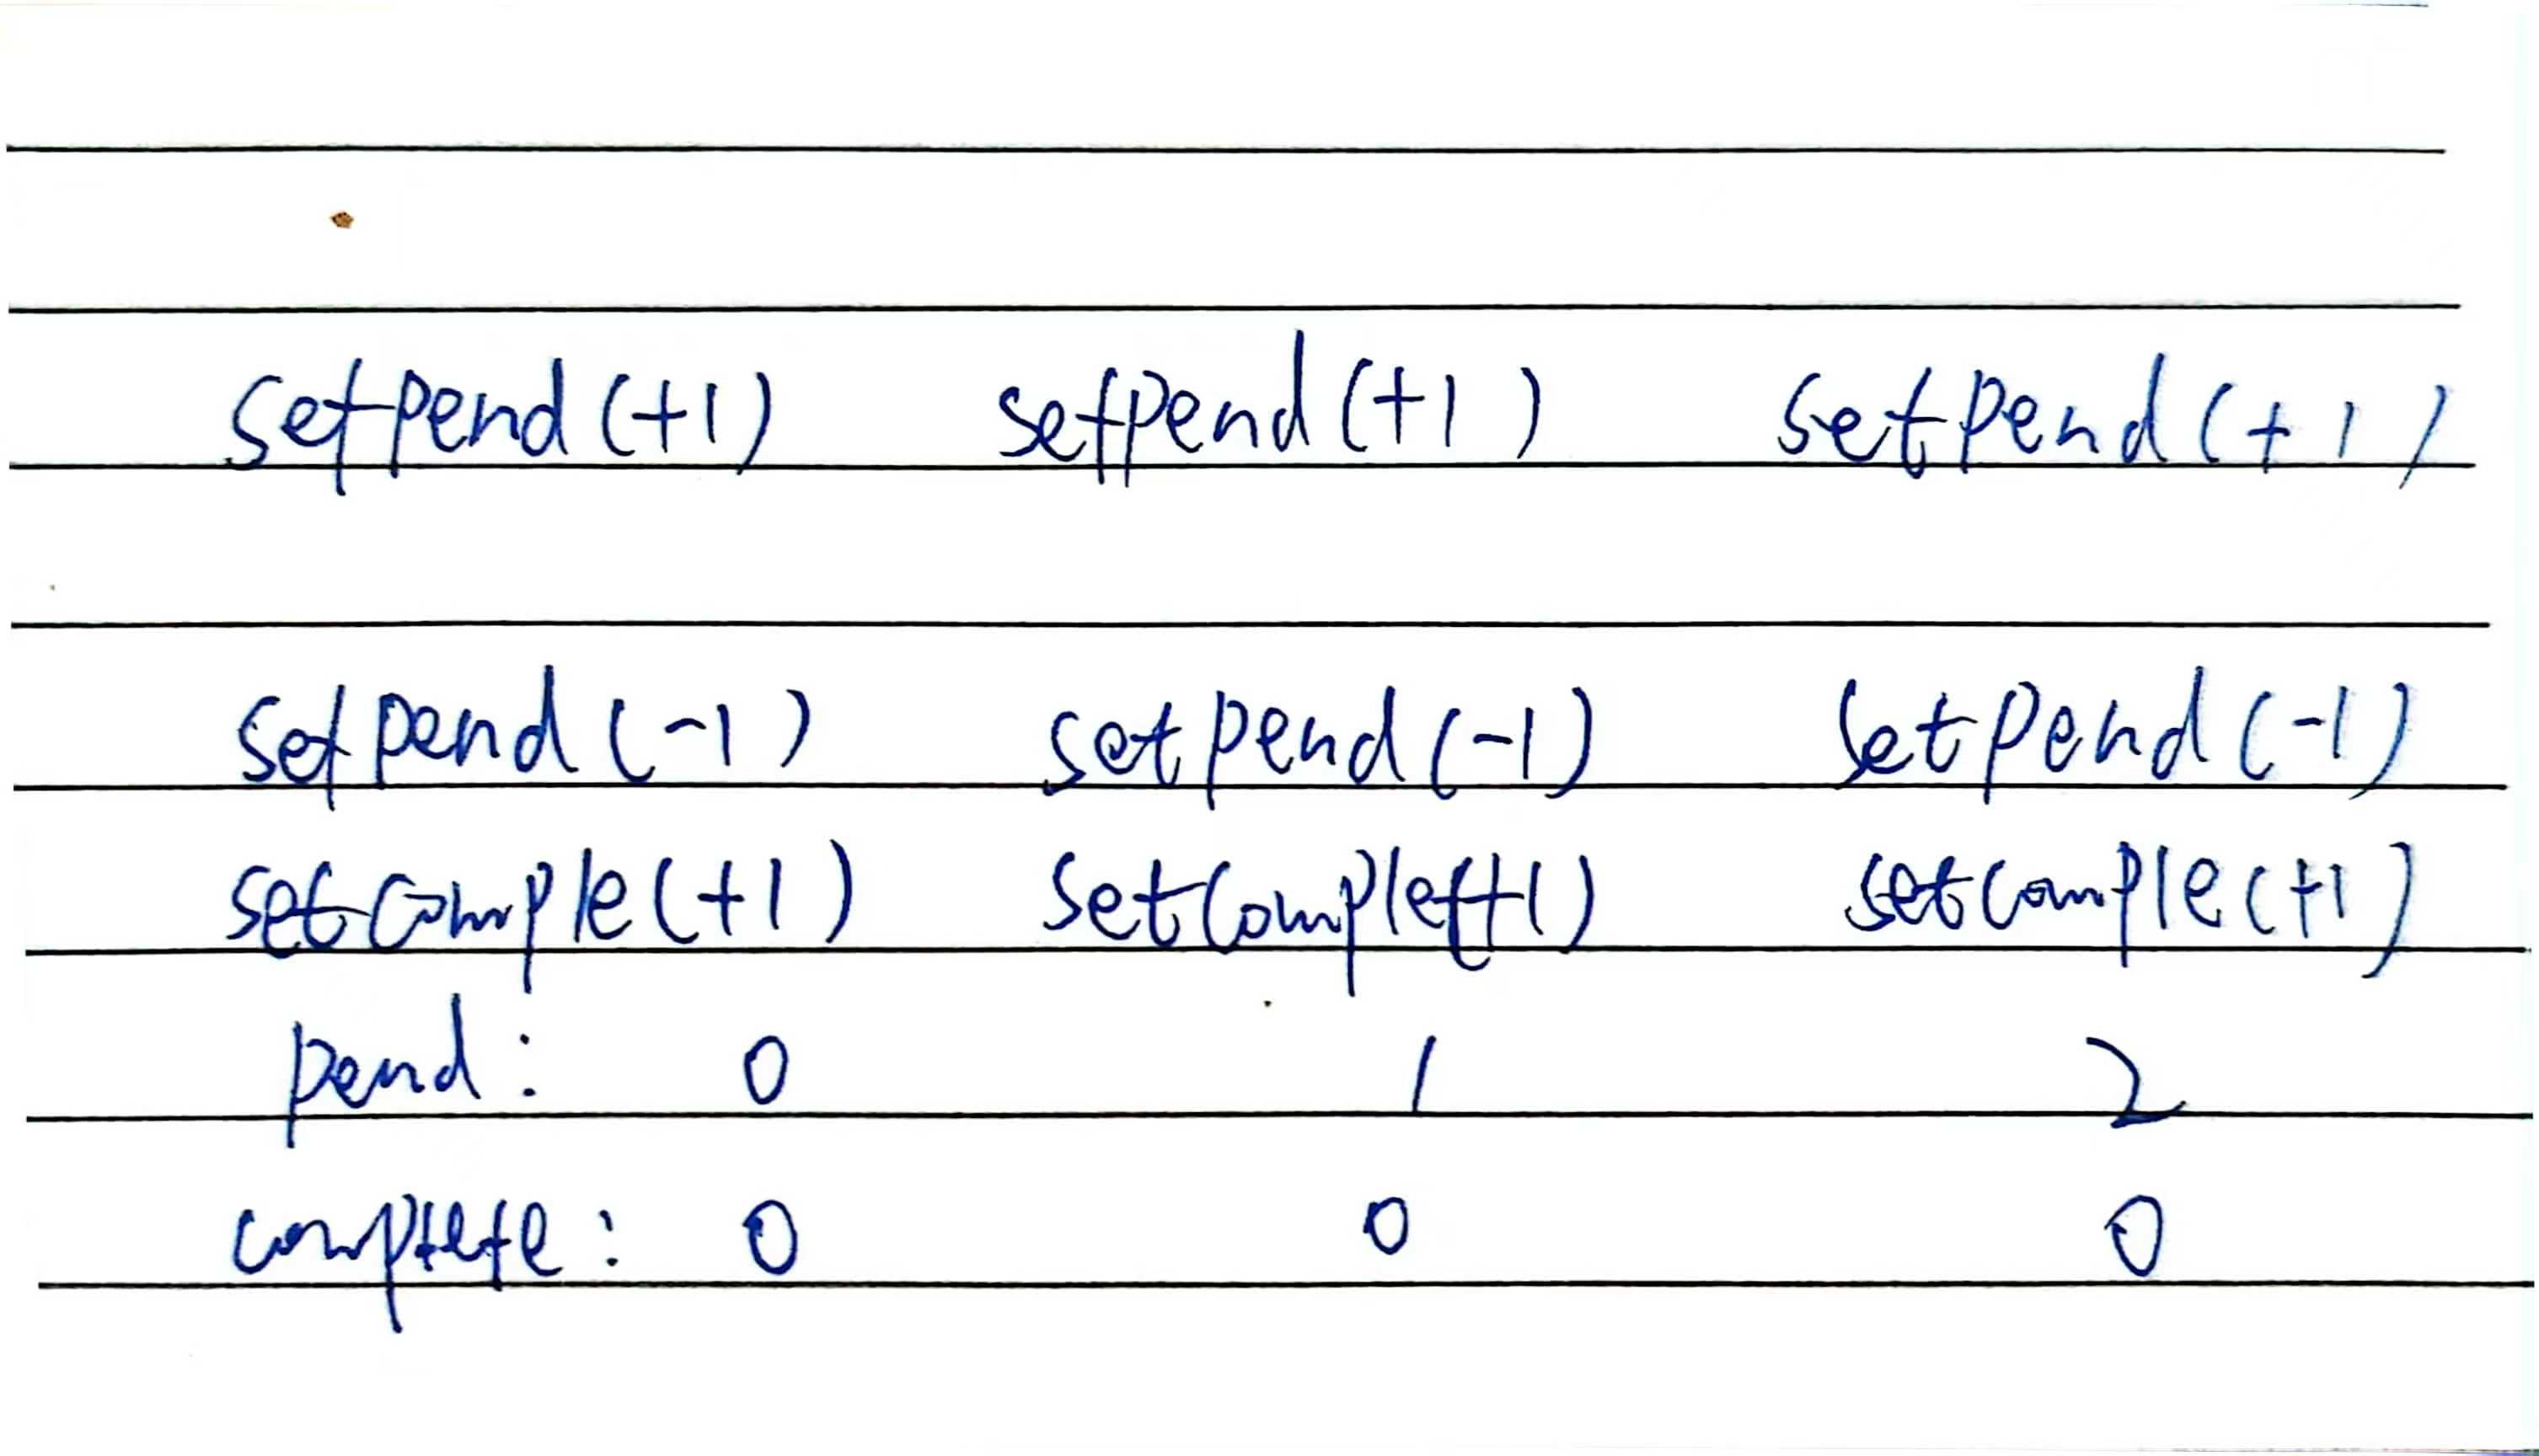 setpend(+1) setpend(+1) setpend(+1)
setpend(-1) setpend(-1) setpend(-1)
setcomple(+1) setcomple(+1) setcomple(+1)
pend: 0 1 2
complete: 0 0 0